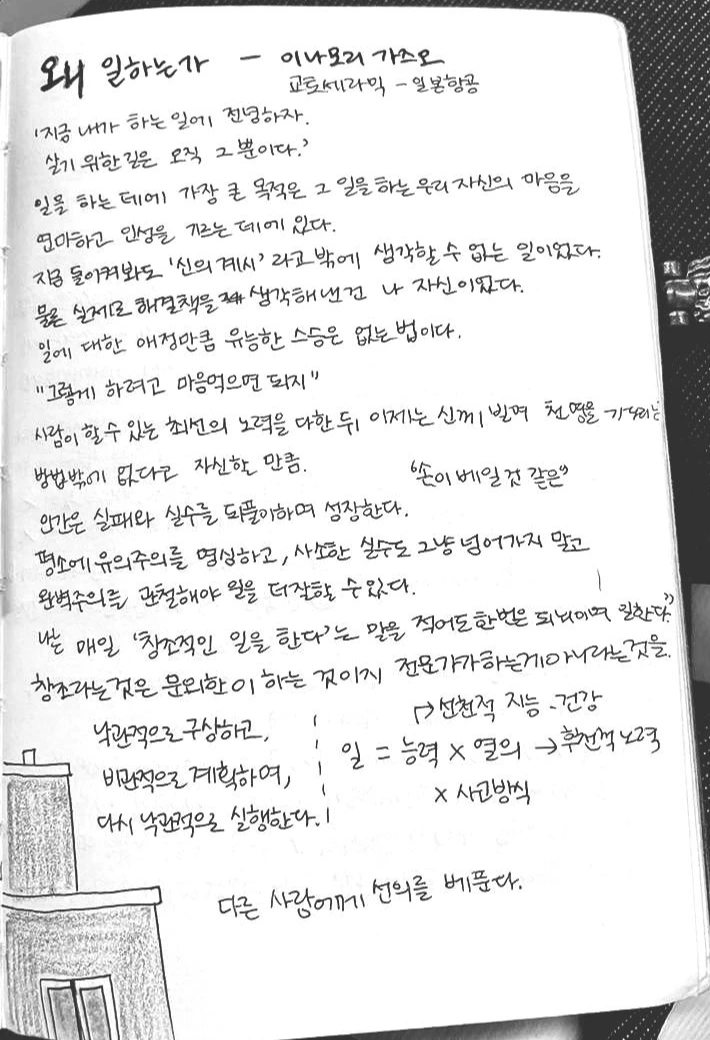 왜 일하는가 - 이나모리 가즈오
교토세라믹 - 일본항공
'지금 내가 하는 일에 전념하자.
살기 위한 길은 오직 그 뿐이다.'
일을 하는 데에 가장 큰 목적은 그 일을 하는 우리 자신의 마음을
연마하고 인성을 기르는 데에 있다.
지금 돌이켜봐도 '신의 계시' 라고 밖에 생각할 수 없는 일이었다.
물론 실제로 해결책을 생각해낸건 나 자신이었다.
일에 대한 애정만큼 유능한 스승은 없는 법이다.
"그렇게 하려고 마음먹으면 되지"
사람이 할 수 있는 최선의 노력을 다한 뒤 이제는 신께 빌며 천명을 기다리는
방법밖에 없다고 자신할 만큼.
"손이 베일 것 같은"
인간은 실패와 실수를 되풀이하며 성장한다.
평소에 유의주의를 명심하고, 사소한 실수도 그냥 넘어가지 말고
완벽주의를 관철해야 일을 더 잘할 수 있다.
나는 매일 '창조적인 일을 한다'는 말을 적어도 한번은 되뇌이며 일한다."
창조라는 것은 문외한이 하는 것이지 전문가가 하는게 아니라는 것을.
낙관적으로 구상하고,
비관적으로 계획하여,
다시 낙관적으로 실행한다.
→ 선천적 지능·건강
일 = 능력 × 열의 → 후천적 노력
× 사고방식
다른 사람에게 선의를 베푼다.